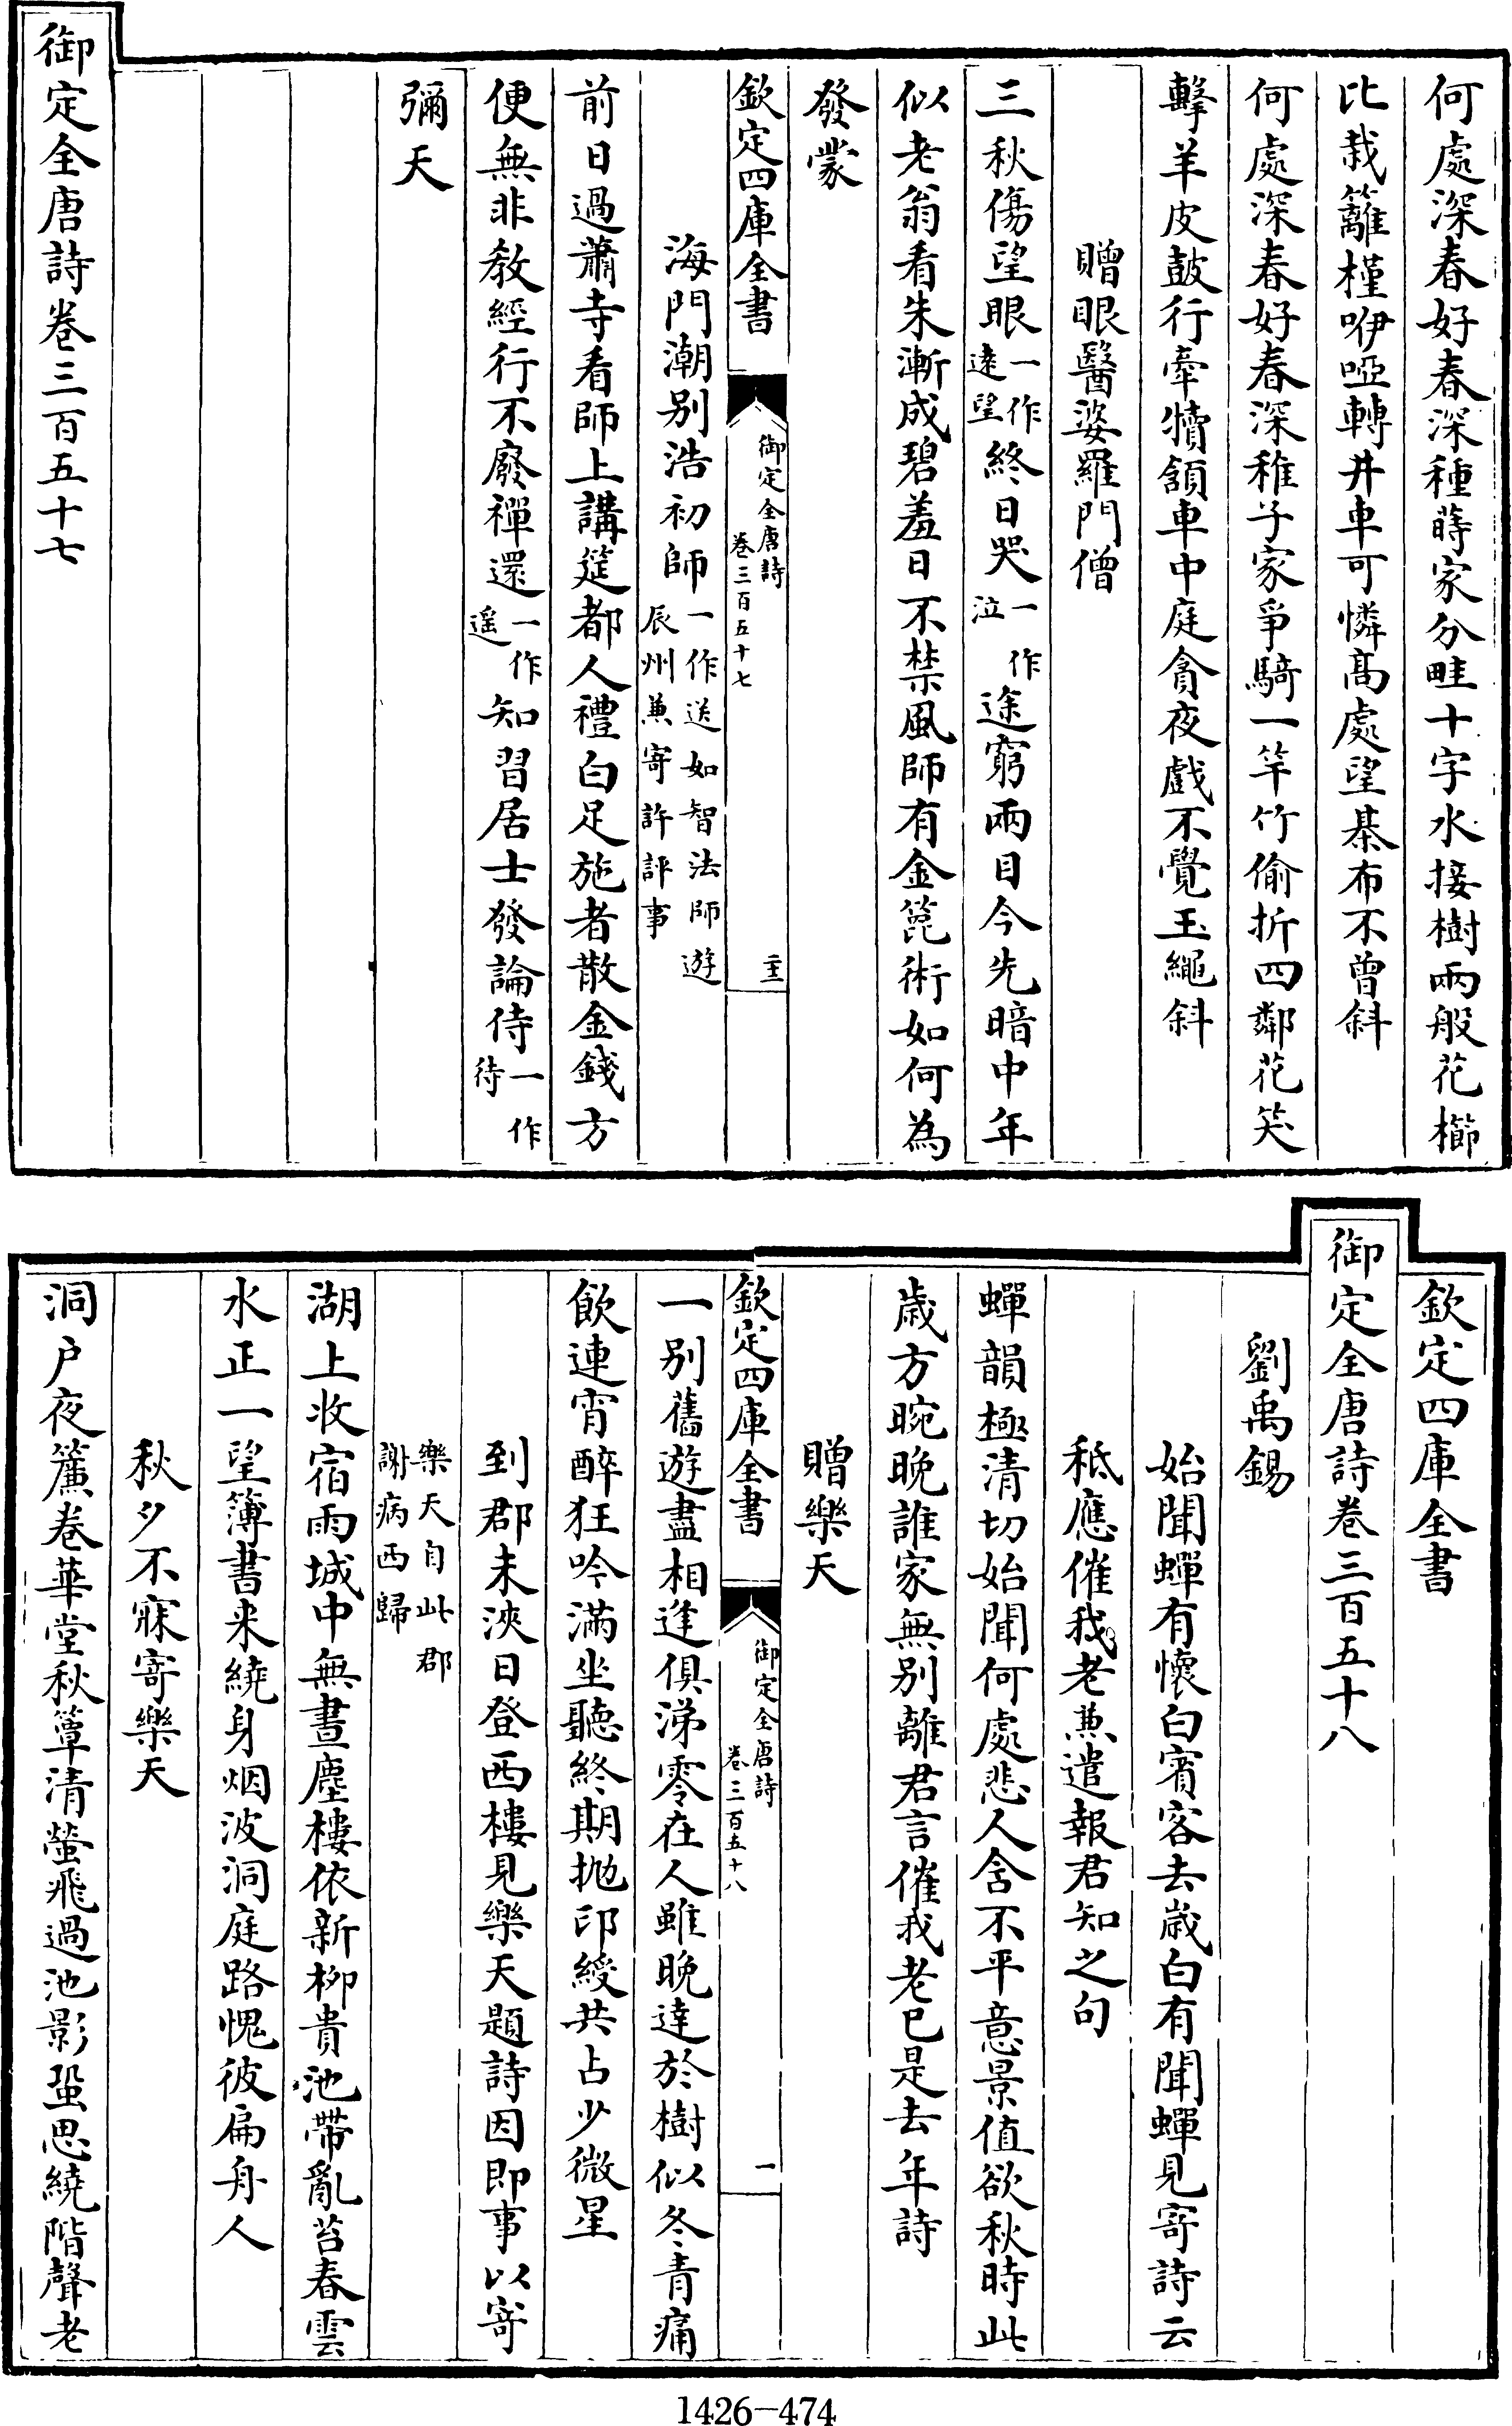 何處深春好春深種蒔家分畦十字水接樹兩般花櫛
比栽籬槿咿啞轉井車可憐高處望棊布不曾斜
何處深春好春深稚子家爭騎一竿竹偷折四鄰花笑
擊羊皮鼓行牽犢頷車中庭貪夜戲不覺玉繩斜
贈眼醫婆羅門僧
三秋傷望眼一作遠望終日哭一作泣途窮兩目今先暗中年
似老翁看朱漸成碧羞日不禁風師有金篦術如何為
發蒙
欽定四庫全書
御定全唐詩
卷三百五十七
海門潮别浩初師一作送如智法師遊辰州兼寄許評事
前日過蕭寺看師上講筵都人禮白足施者散金錢方
便無非教經行不廢禪還一作遥知習居士發論侍一作待
彌天
御定全唐詩卷三百五十七
欽定四庫全書
御定全唐詩卷三百五十八
劉禹錫
始聞蟬有懷白賓客去歲白有聞蟬見寄詩云
秪應催我老兼遣報君知之句
蟬韻極清切始聞何處悲人含不平意景值欲秋時此
歲方晼晚誰家無别離君言催我老已是去年詩
贈樂天
欽定四庫全書
御定全唐詩
卷三百五十八
一
一别舊遊盡相逢俱涕零在人雖晚達於樹似冬青痛
飲連宵醉狂吟滿坐聽終期抛印綬共占少微星
到郡未浹日登西樓見樂天題詩因即事以寄
樂天自此郡謝病西歸
湖上收宿雨城中無晝塵樓依新柳貴池帶亂苔春雲
水正一望簿書来繞身烟波洞庭路愧彼扁舟人
秋夕不寐寄樂天
洞户夜簾卷華堂秋簟清螢飛過池影蛩思繞階聲老
1426-474